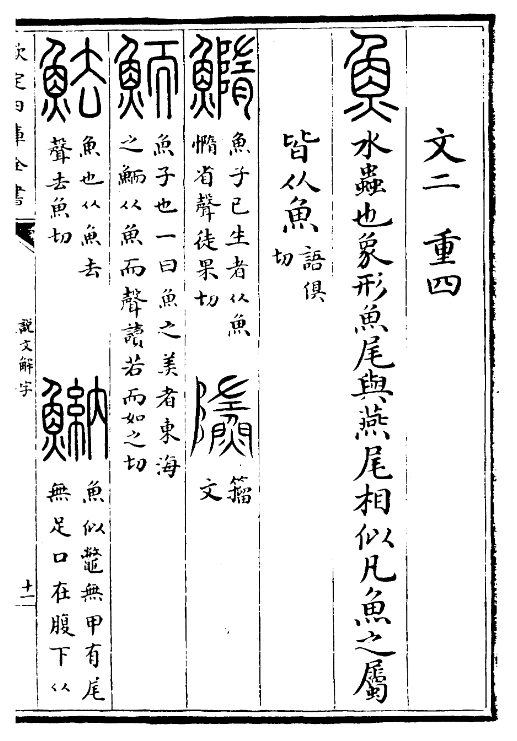 文二　重四
魚水蟲也象形魚尾與燕尾相似凡魚之屬
皆从魚語俱切
䲊魚子已生者从魚
憜省聲徒果切
籀
文
鮞魚子也一曰魚之美者東海
之鮞从魚而聲讀若而如之切
魼魚也从魚去
聲去魚切
魶魚似鼈無甲有尾
無足口在腹下从
欽定四庫全書
說文解字
十二